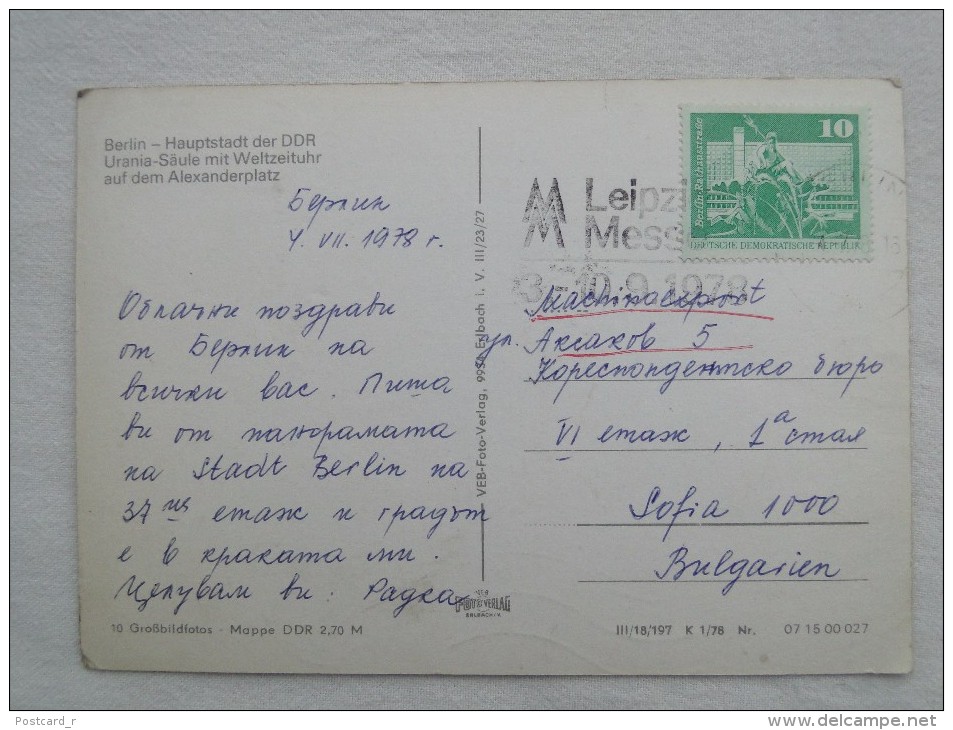 Berlin – Hauptstadt der DDR
Urania-Säule mit Weltzeituhr
auf dem Alexanderplatz
Берлин
4. VII. 1978 г.
Облачни поздрави
от Берлин на
всички вас. Пиша
ви от панорамата
на Stadt Berlin на
37ия етаж и градът
е в краката ми.
Целувам ви. Радка
10 Großbildfotos · Mappe DDR 2,70 M
VEB-Foto-Verlag, 9934 Erlbach i. V. III/23/27
FOTO VERLAG
ERLBACH I.V.
Leipzi
Mess
3.-10.9.1978
10
Berlin-Rathausstraße
DEUTSCHE DEMOKRATISCHE REPUBLIK
Machinoexport
ул. Аксаков 5
Кореспондентско бюро
VI етаж, 1а стая
Sofia 1000
Bulgarien
III/18/197 K 1/78 Nr. 07 15 00 027
Postcard_r
www.delcampe.net